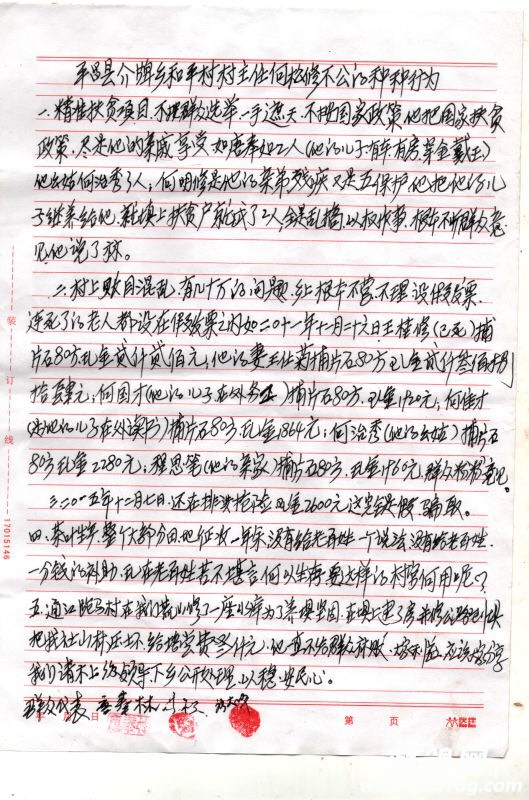 平昌县介牌乡和平村村主任何松修不公的种种行为
一、精准扶贫项目,不理群众选举,一手遮天,不按国家政策他把国家扶贫
政策,尽是他的亲戚享受,如唐奉如2人(他的儿子有车有房菜金戴玉)
他出嫁何治秀了人;何明修是他的亲弟残疾又是五保护他把他的儿
子继养给他,新填上扶贫户就成了2人,全是乱搞,以权代事,根本不听群众意
见,他说了称。
二、村上账目混乱,有几十万的问题,纪上根本不管不理,设假发票,
连死了的老人都设在假发票之内如二0十一年十月二十六日王桂修(已死)捕
片石80方,现金贰仟贰佰元;他的妻王仕菊捕片石80方现金贰仟叁佰捌
拾肆元;何国才(他的儿子在外务工)捕片石80方,现金1920元;何进才
(他的儿子在外读书)捕片石80方,现金1864元;何治秀(他的出嫁)捕片石
80方现金2280元;程思笔(他的亲家)捕片石80方,现金1960元,群众纷纷意见。
三、二0一五年十二月七日,还在排洪抢险现金2600元这完全是假骗取。
四、茶叶坐车,整个大部分田地征收,一年来没有给老百姓一个说法,没有给老百姓
一分钱的补助,现在老百姓苦不堪言,何以生存,要这样的村官何用呢?
五、通江跑马村在我们荒山修了一座水库为了养供坚固,在坝上建了房,并修公路
把我社山林还出不给赔尝费多仟元,他查不给群众
我们请示上级领导下乡公开处理,以稳安民心。
群众代表
年 月 日 第 页 共 页
装 订 线 17015146